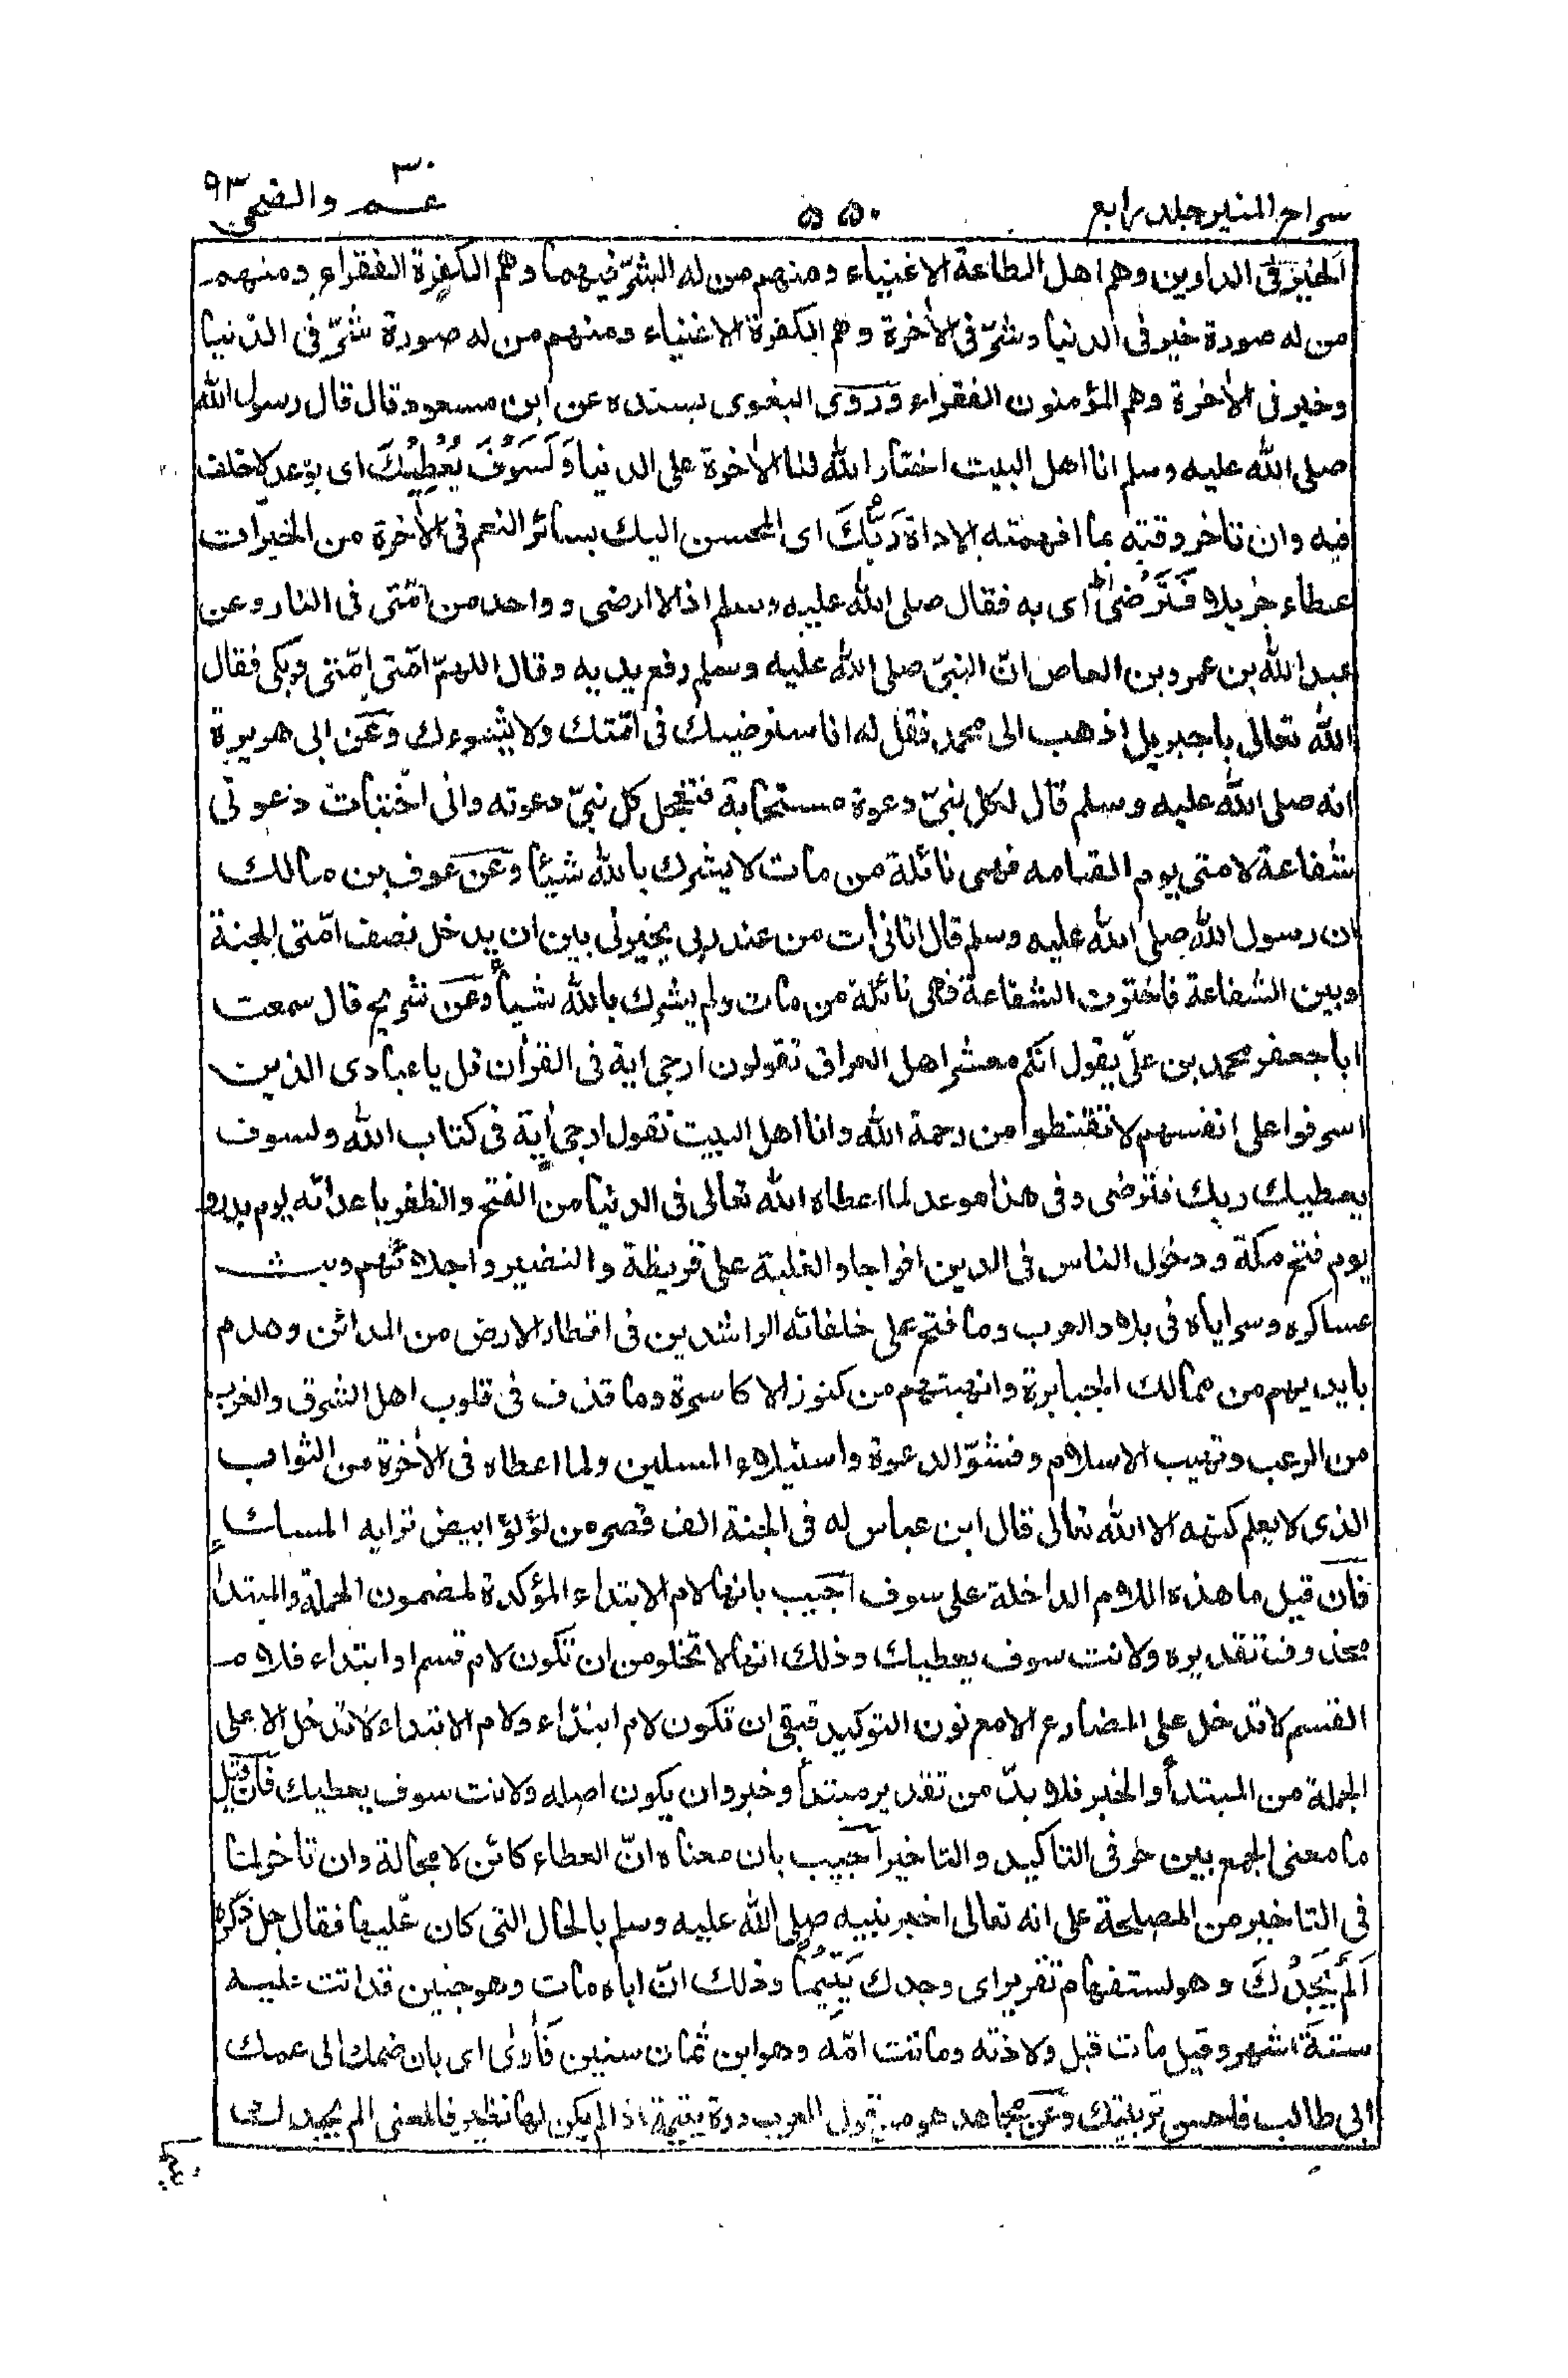 سراج المنير جلد رابع
٥٥٠
٣٠
عــم والضحى ٩٣
الخير فى الدارين وهم اهل الطاعة الاغنياء ومنهم من له الشرّ فيهما وهم الكفرة الفقراء ومنهم
من له صورة خير فى الدنيا وشرّ فى الأخرة وهم الكفرة الاغنياء ومنهم من له صورة شرّ فى الدنيا
وخير فى الأخرة وهم المؤمنون الفقراء وروى البغوى بسنده عن ابن مسعود قال قال رسول الله
صلى الله عليه وسلم انا اهل البيت اختار الله لنا الأخرة على الدنيا وَلَسَوْفَ يُعْطِيْكَ اى بوعد لا خلف
فيه وان تاخر وقته بما افهمته الاداة رَبُّكَ اى المحسن اليك بسائر النعم فى الأخرة من الخيرات
عطاء جزيلا فَتَرْضٰى اى به فقال صلى الله عليه وسلم اذا لا ارضى وواحد من امّتى فى النار وعن
عبد الله بن عمرو بن العاص انّ النبىّ صلى الله عليه وسلم رفع يديه وقال اللهمّ امّتى امّتى وبكى فقال
الله تعالى يا جبريل اذهب الى محمد فقل له انا سنرضيك فى امّتك ولا نسوءك وعن ابى هريرة
انه صلى الله عليه وسلم قال لكل نبىّ دعوة مستجابة فتعجل كل نبىّ دعوته وانى اختبأت دعوتى
شفاعة لامتى يوم القيامه فهى نائلة من مات لا يشرك بالله شيئا وعن عوف بن مالك
ان رسول الله صلى الله عليه وسلم قال اتانى أت من عند ربى يخيرنى بين ان يدخل نصف امّتى الجنة
وبين الشفاعة فاخترت الشفاعة فهى نائلة من مات ولم يشرك بالله شيأ وعن شريح قال سمعت
ابا جعفر محمد بن علىّ يقول انكم معشر اهل العراق تقولون ارجى اية فى القرأن قل يا عبادى الذين
اسرفوا على انفسهم لا تقنطوا من رحمة الله وانا اهل البيت نقول ارجى أية فى كتاب الله ولسوف
يعطيك ربك فترضى وفى هذا موعد لما اعطاه الله تعالى فى الدنيا من الفتح والظفر باعدائه يوم بدر و
يوم فتح مكة ودخول الناس فى الدين افواجا والغلبة على قريظة والنضير واجلائهم وبث
عساكره وسراياه فى بلاد العرب وما فتح على خلفائه الراشدين فى اقطار الارض من المدائن وهدم
بايديهم من ممالك الجبابرة وانهبتهم من كنوز الاكاسرة وما قذف فى قلوب اهل الشرق والغرب
من الرعب وتهيب الاسلام وفشوّ الدعوة واستيلاء المسلمين ولما اعطاه فى الأخرة من الثواب
الذى لا يعلم كنهه الا الله تعالى قال ابن عباس له فى الجنة الف قصر من لؤلؤ ابيض ترابه المسك
فان قيل ما هذه اللام الداخلة على سوف اجيب بانها لام الابتداء المؤكدة لمضمون الجملة والمبتدأ
محذوف تقديره ولانت سوف يعطيك وذلك انها لا تخلو من ان تكون لام قسم او ابتداء فلام
القسم لا تدخل على المضارع الا مع نون التوكيد فبقى ان تكون لام ابتداء ولام الابتداء لا تدخل الا على
الجملة من المبتدأ والخبر فلا بدّ من تقدير مبتدأ وخبر وان يكون اصله ولانت سوف يعطيك فان قيل
ما معنى الجمع بين حرفى التاكيد والتاخير اجيب بان معناه انّ العطاء كائن لا محالة وان تاخر لما
فى التاخير من المصلحة على انه تعالى اخبر نبيه صلى الله عليه وسلم بالحال التى كان عليها فقال جل ذكره
اَلَمْ يَجِدْكَ وهو استفهام تقرير اى وجدك يَتِيْمًا وذلك انّ اباه مات وهو جنين قد اتت عليه
ستة اشهر وقيل مات قبل ولادته وماتت امّه وهو ابن ثمان سنين فَأٰوٰى اى بان ضمك الى عمك
ابى طالب فاحسن تربيتك وعن مجاهد هو من قول العرب درة يتيمة اذا لم يكن لها نظير فالمعنى الم يجدك